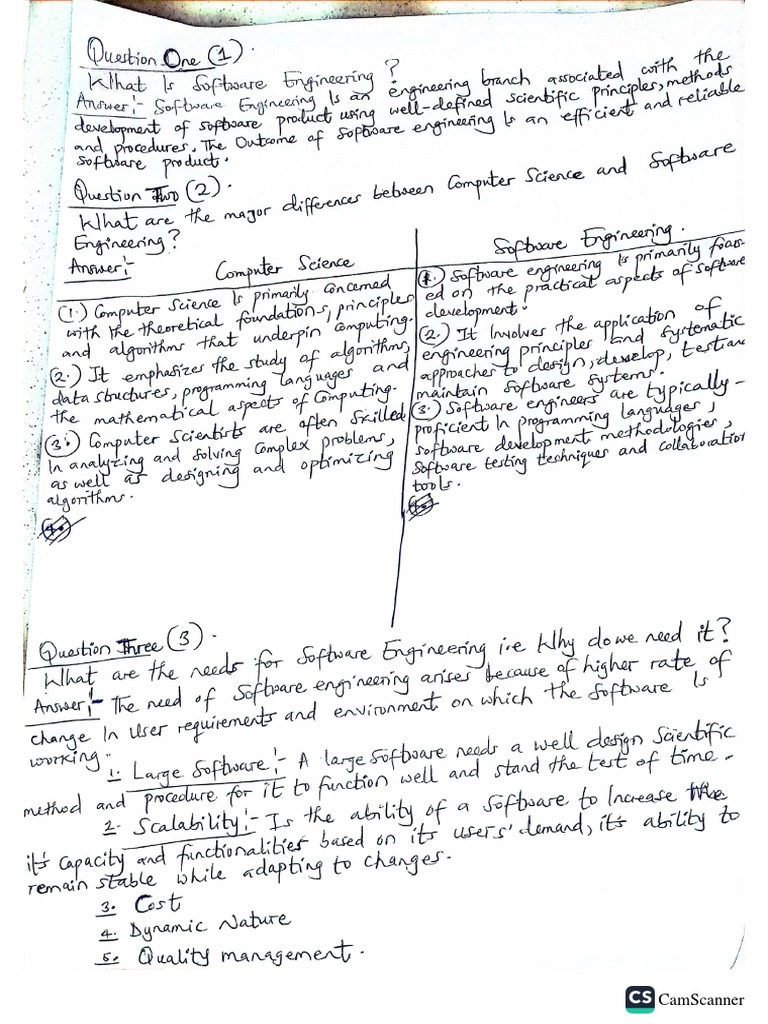 Question One (1).
What Is Software Engineering?
Answer:- Software Engineering Is an engineering branch associated with the
development of software product using well-defined scientific principles, methods
and procedures. The Outcome of Software engineering Is an efficient and reliable
Software product.
Question Two (2).
What are the major differences between Computer Science and Software
Engineering?
Answer:-
Computer Science
(1.) Computer Science Is primarily Concerned
with the theoretical foundations, principles
and algorithms that underpin computing.
(2.) It emphasizes the study of algorithms,
data structures, programming languages and
the mathematical aspects of Computing.
(3.) Computer Scientists are often Skilled
In analyzing and solving Complex problems,
as well as designing and optimizing
algorithms.
Software Engineering.
(1.) Software engineering Is primarily focus-
ed on the practical aspects of Software
development.
(2.) It Involves the application of
engineering principles and Systematic
approaches to design, develop, test and
maintain Software Systems.
(3.) Software engineers are typically-
proficient In programming languages,
software development methodologies,
Software testing techniques and collaboration
tools.
Question Three (3).
What are the needs for Software Engineering i.e Why do we need it?
Answer:- The need of Software engineering arises because of higher rate of
change In user requirements and environment on which the Software Is
working.
1. Large Software:- A large software needs a well design Scientific
method and procedure for it to function well and stand the test of time.
2. Scalability:- Is the ability of a Software to Increase
it's Capacity and functionalities based on its users' demand, it's ability to
remain stable while adapting to changes.
3. Cost
4. Dynamic Nature
5. Quality management.
CS CamScanner